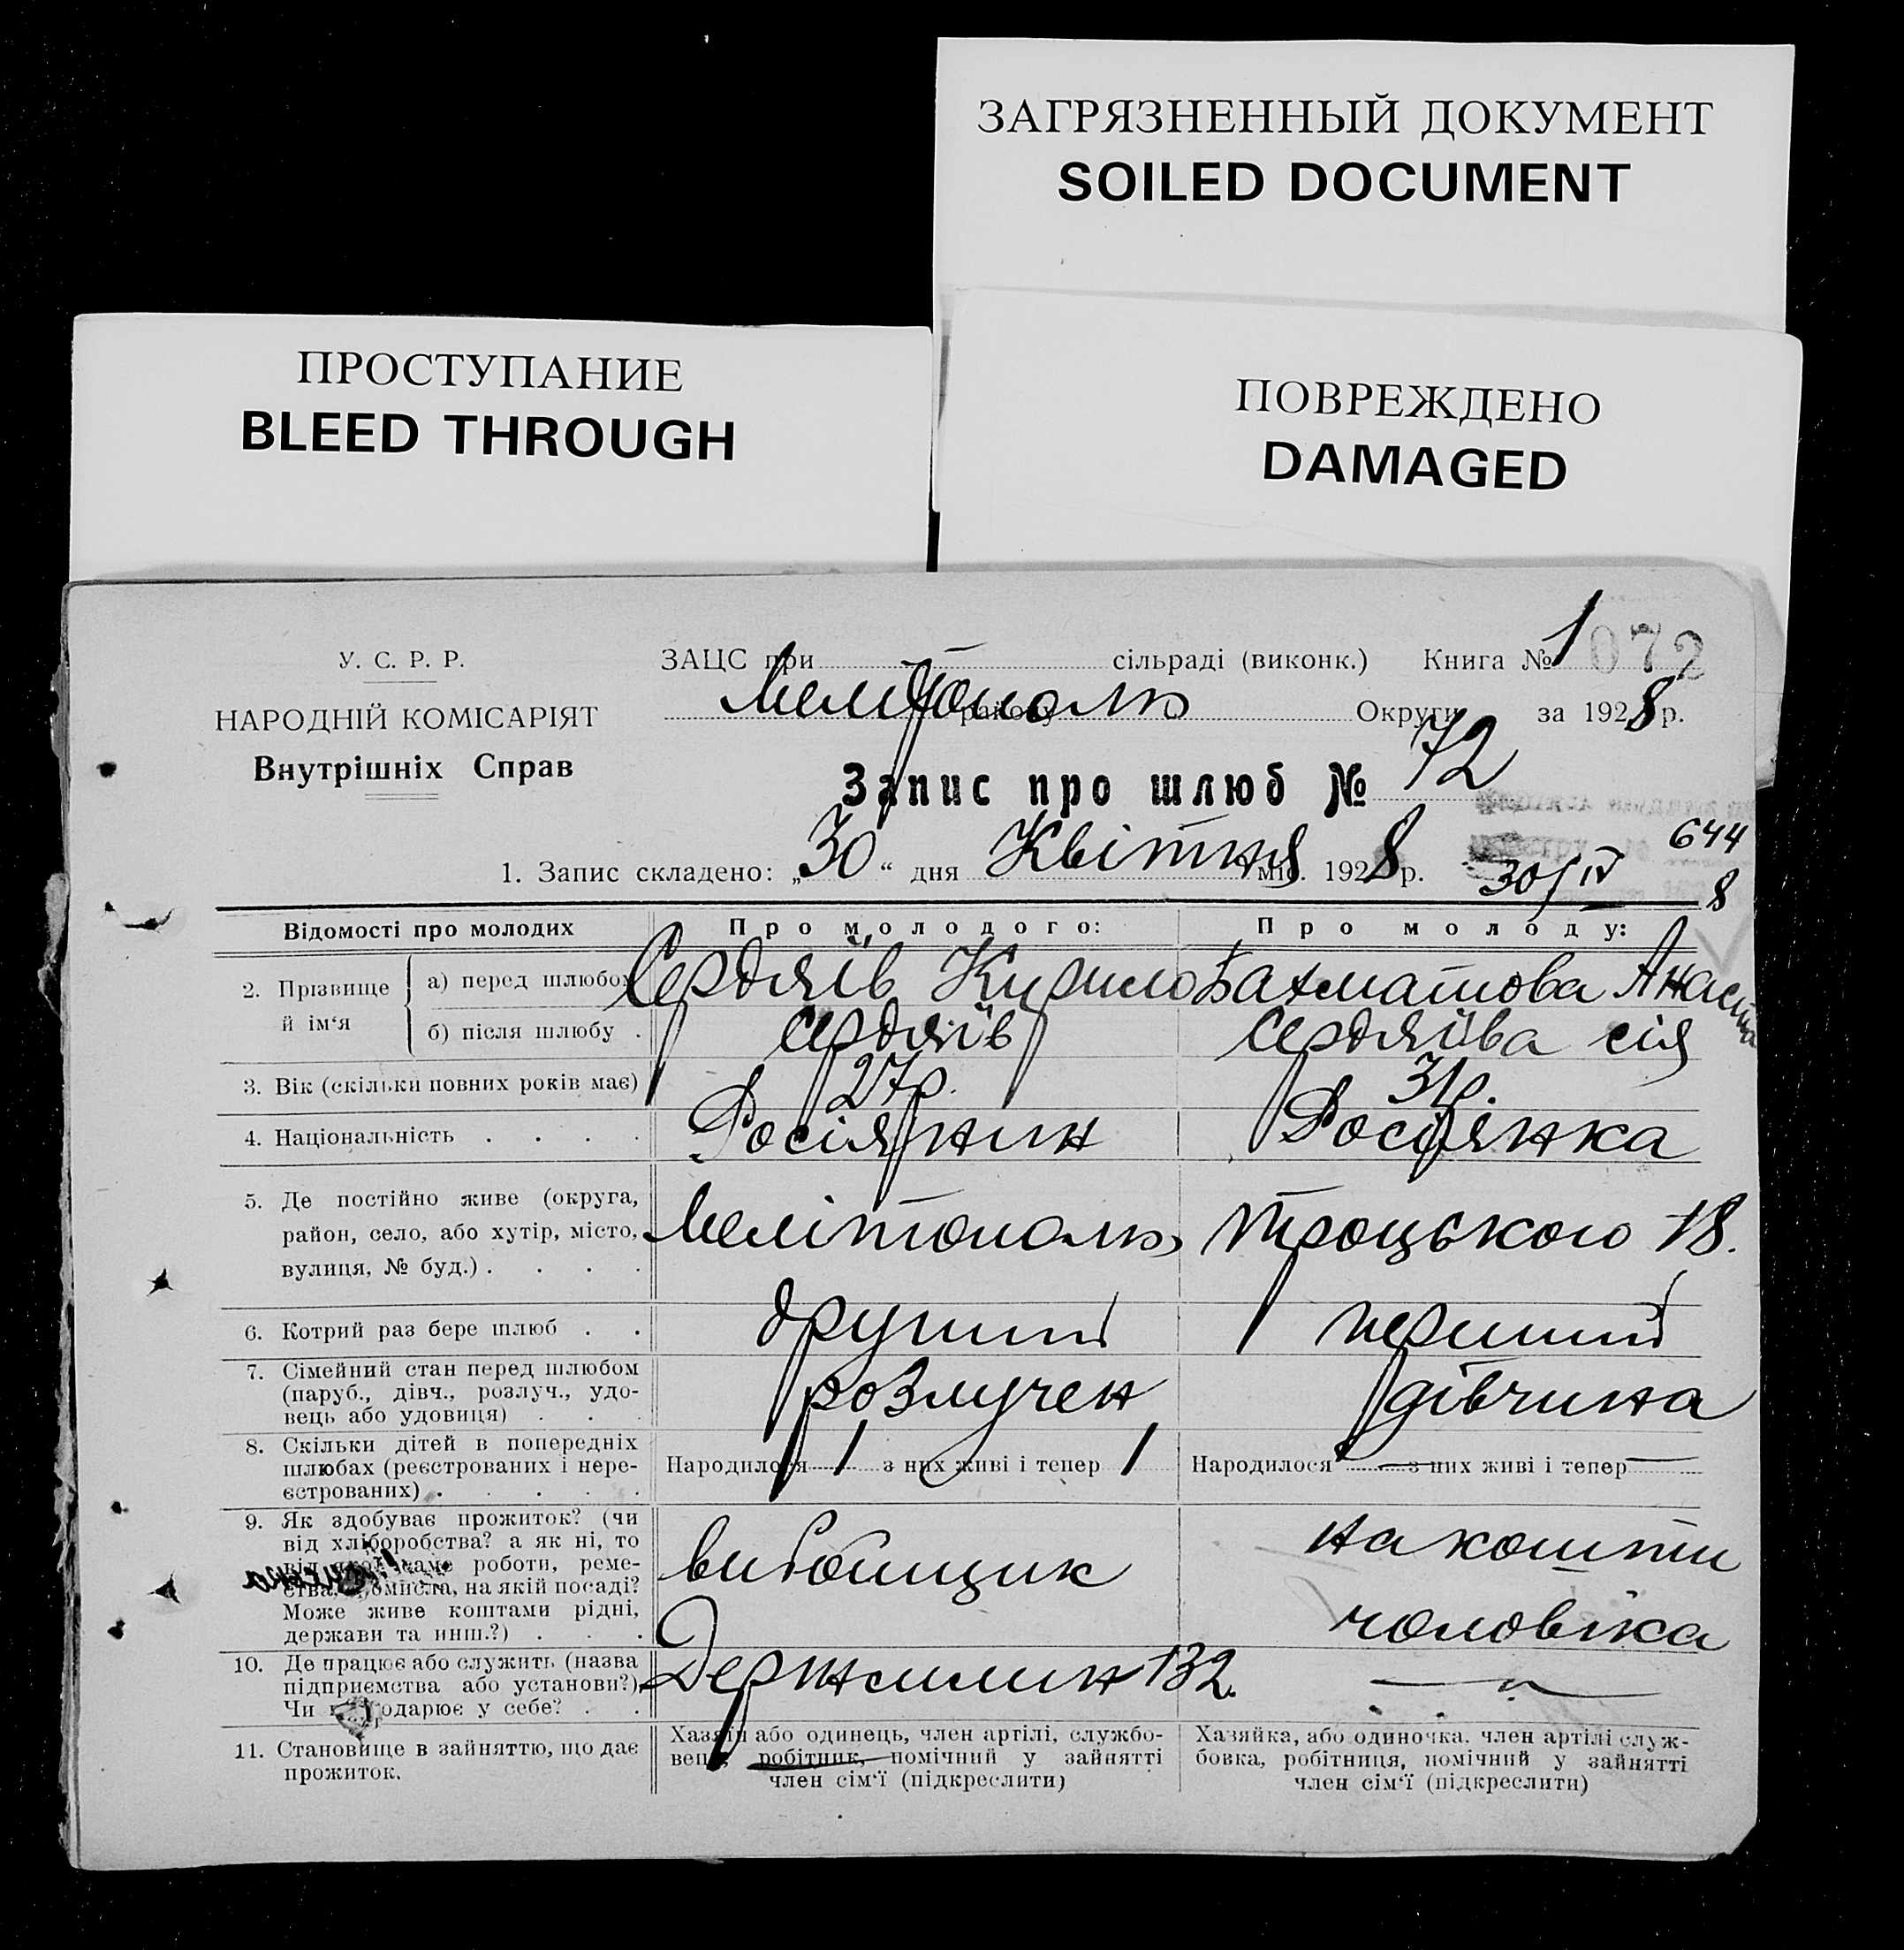 ЗАГРЯЗНЕННЫЙ ДОКУМЕНТ
SOILED DOCUMENT
ПРОСТУПАНИЕ
BLEED THROUGH
ПОВРЕЖДЕНО
DAMAGED
У. С. Р. Р.
НАРОДНІЙ КОМІСАРІЯТ
Внутрішніх Справ
ЗАЦС при — сільраді (виконк.) Книга № 1 072
Мелітополь району Округи за 1928 р.
Запис про шлюб № 72
644
1. Запис складено: „30“ дня Квітня міс. 1928 р. 30/IV 8
Відомості про молодих Про молодого: Про молоду:
2. Прізвище й ім‘я
а) перед шлюбом Сердяїв Кирило Бахматова Анаста
б) після шлюбу . Сердяїв Сердяїва сія
3. Вік (скільки повних років має) 27р. 31р.
4. Національність . . . . Росіянин Росіянка
5. Де постійно живе (округа,
район, село, або хутір, місто, Мелітополь, Троцького 18.
вулиця, № буд.) . . . .
6. Котрий раз бере шлюб . . другий перший
7. Сімейний стан перед шлюбом
(паруб., дівч., розлуч., удо- розлучен дівчина
вець або удовиця) . . .
8. Скільки дітей в попередніх
шлюбах (реєстрованих і нере- Народилося 1 з них живі і тепер 1 Народилося — з них живі і тепер —
єстрованих) . . . . .
9. Як здобуває прожиток? (чи
від хліборобства? а як ні, то на кошти
від якої саме роботи, реме-
ства, промисла, на якій посаді?
Може живе коштами рідні, чоловіка
держави та инш.?) . . .
10. Де працює або служить (назва
підприємства або установи?) Держмлин 132. — „ —
Чи господарює у себе? . .
11. Становище в зайняттю, що дає
прожиток.
Хазяїн або одинець, член артілі, службо-
вець, робітник, помічний у зайнятті
член сім‘ї (підкреслити)
Хазяйка, або одиночка. член артілі служ-
бовка, робітниця, помічний у зайнятті
член сім‘ї (підкреслити)